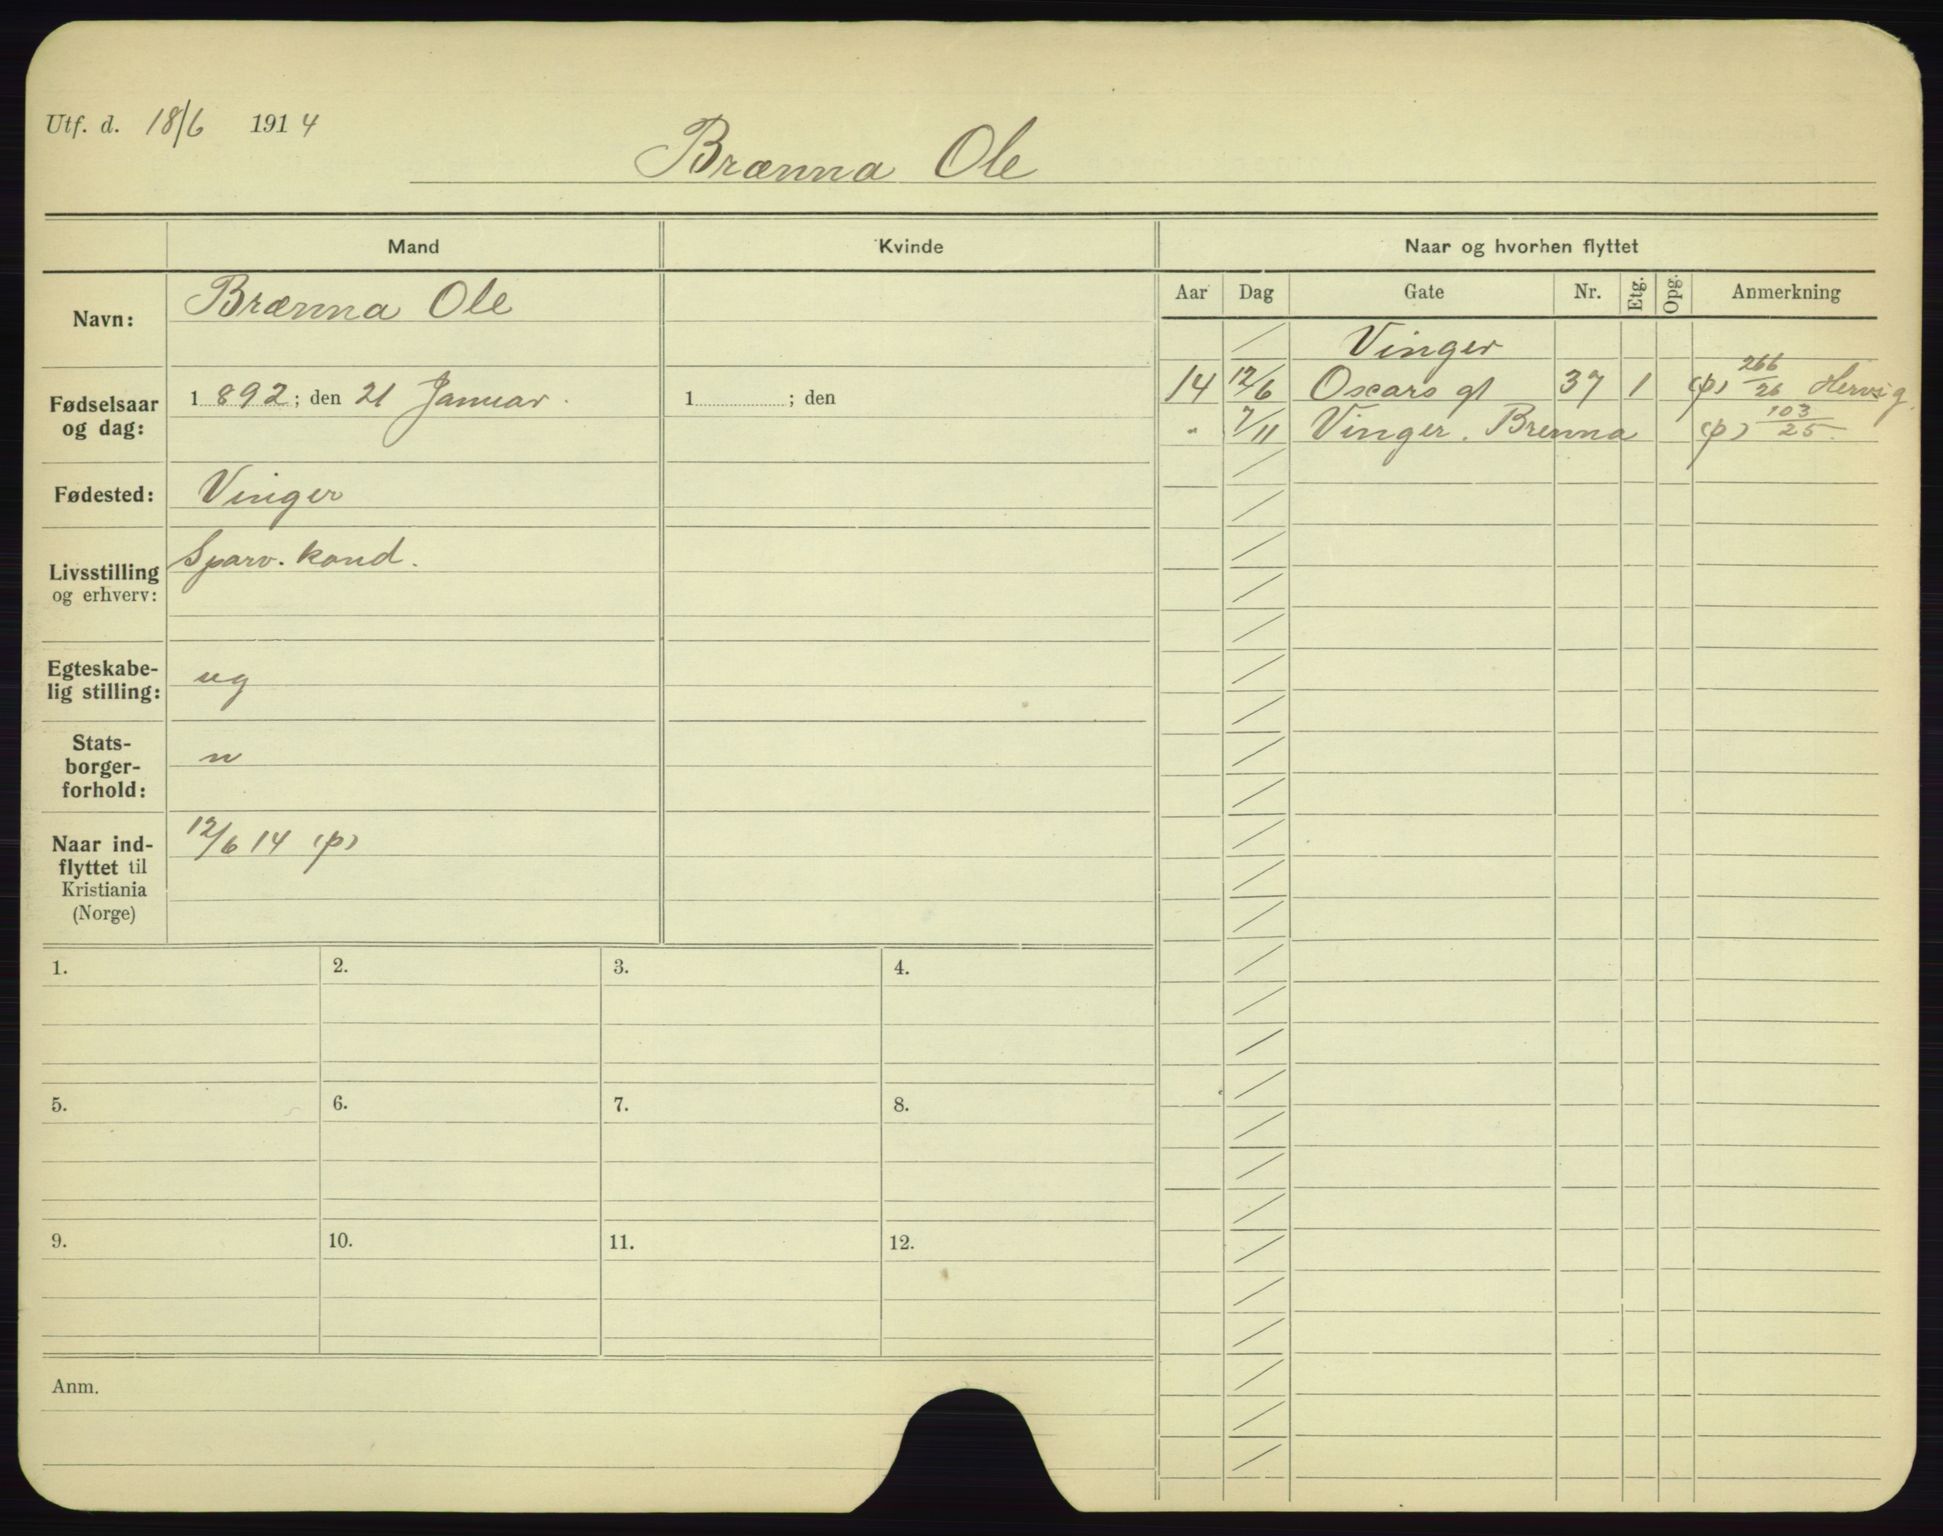 Utf. d. 18/6 1914
Brænna Ole
Mand Kvinde Naar og hvorhen flyttet
Navn: Brænna Ole
Aar Dag Gate Nr. Etg. Opg. Anmerkning
Vinger
14 12/6 Oscars gt 37 1 (p) 266/26 Hervig.
" 7/11 Vinger. Brenna (p) 103/25.
Fødselsaar
og dag:
1892; den 21 Januar.
1 ; den
Fødested: Vinger
Livsstilling
og erhverv:
Sporv. kond.
Egteskabe-
lig stilling:
ug
Stats-
borger-
forhold:
n
Naar ind-
flyttet til
Kristiania
(Norge)
12/6 14 (p)
1. 2. 3. 4.
5. 6. 7. 8.
9. 10. 11. 12.
Anm.